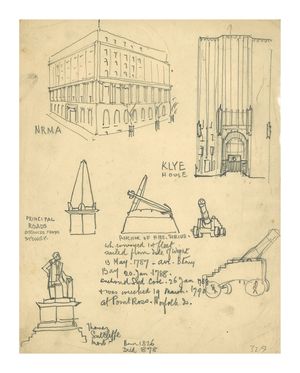 NRMA
KLYE
HOUSE
PRINCIPAL
ROADS
DISTANCES FROM
SYDNEY.
ANCHOR OF H.M.S. SIRIUS
wh. convoyed 1st fleet
sailed from Isle of Wight
13 May. 1787 - arr. Botany
Bay 20. Jan 1788.
anchored Syd Cove. 26 Jan 1788
& was wrecked 19 March. 1790
at Point Ross. Norfolk Is.
Thomas
Sutcliffe
Mort
Born 1826
Died 1878